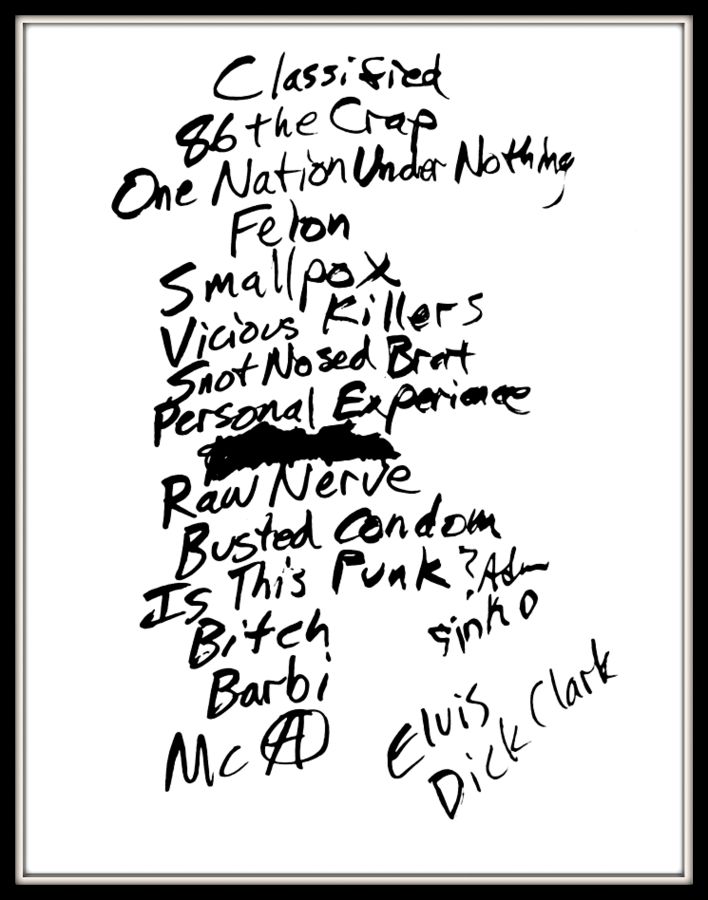 Classified
86 the Crap
One Nation Under Nothing
Felon
Smallpox
Vicious Killers
Snot Nosed Brat
Personal Experience
Raw Nerve
Busted Condom
Is This Punk?
Bitch
Barbi
Mc Ⓐ
Ginko
Elvis
Dick Clark